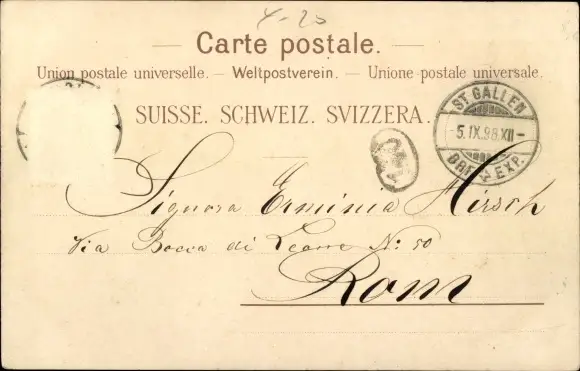 4-20
Carte postale.
Union postale universelle. — Weltpostverein. — Unione postale universale.
SUISSE. SCHWEIZ. SVIZZERA.
ST GALLEN
-5.IX.98.XII-
BRF EXP.
Signora Erminia Hirsch
Via Bocca di Leone No: 50
Rom